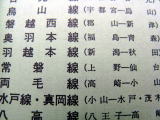 烏山線(宇都宮―烏山
磐越西線(郡山―新
奥羽本線(福島―青
羽越本線(新津―秋
常磐線(日
両毛線(高崎―小山
水戸線・真岡線(小山―水戸・茂
八高線(八王子―高